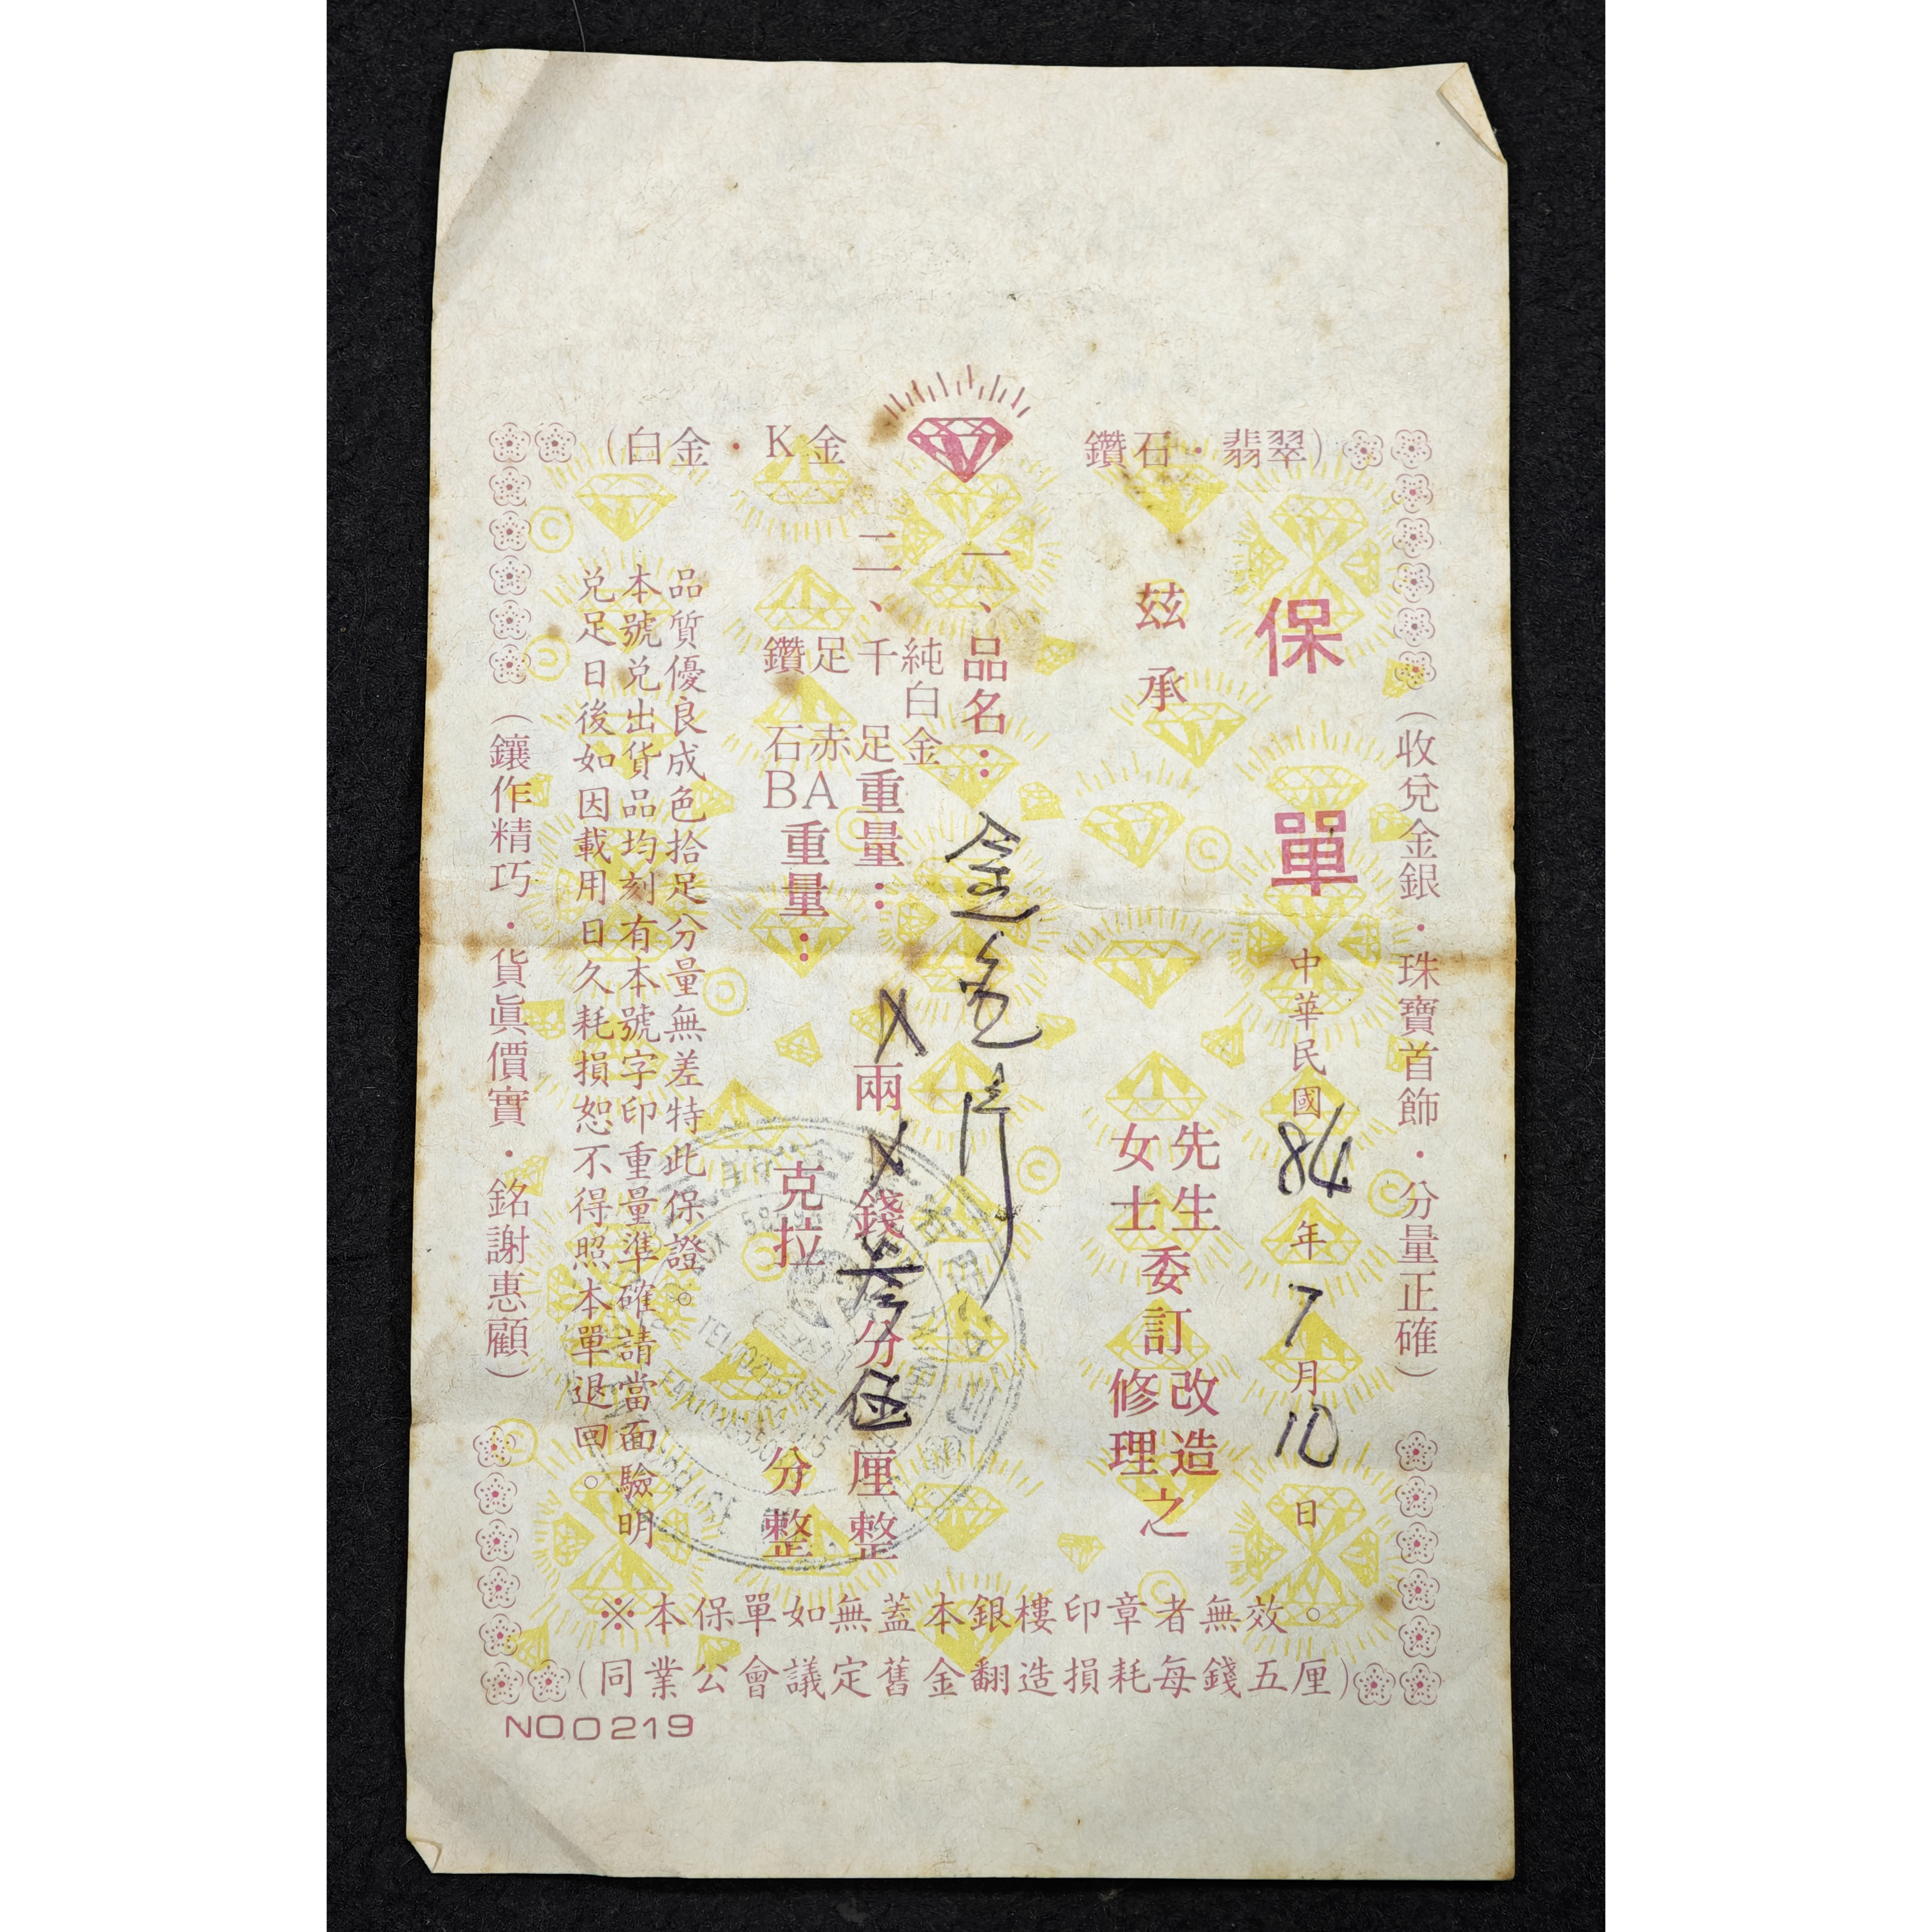 (白金・K金 鑽石・翡翠)
(收兌金銀・珠寶首飾・分量正確)
保單
中華民國84年7月10日
茲承
先生
女士
委訂
改造
修理
之
一、品名：金
二、
純白金
千足
足赤
重量：X兩X錢叁分伍厘整
鑽石BA重量：克拉分整
品質優良成色拾足分量無差特此保證。
本號兌出貨品均刻有本號字印重量準確請當面驗明
兌足日後如因載用日久耗損恕不得照本單退回。
(鑲作精巧・貨眞價實・銘謝惠顧)
※本保單如無蓋本銀樓印章者無效。
(同業公會議定舊金翻造損耗每錢五厘)
NO0219